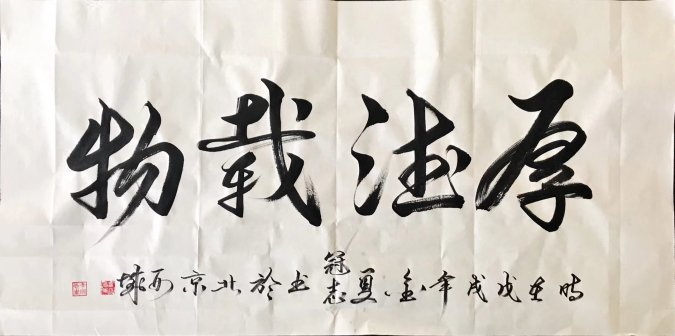 厚德载物
时在戊戌年夏冠志书於北京西城